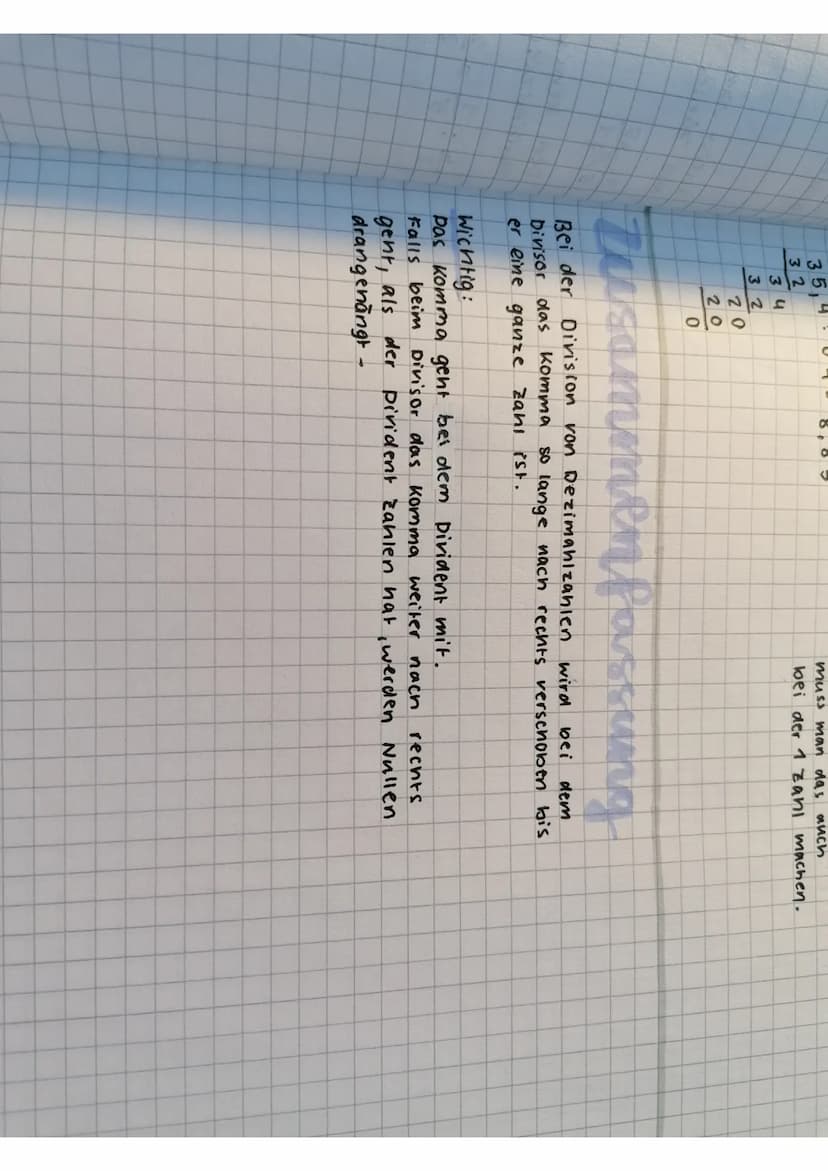 muss man das auch
bei der 1 Zahl machen.
35,4
32
34
32
20
20
0
Zusammenfassung
Bei der Division von Dezimahlzahlen wird bei dem
Divisor das Komma so lange nach rechts verschoben bis
er eine ganze Zahl ist.
Wichtig:
Das Komma geht bei dem Divident mit.
Falls beim Divisor das Komma weiter nach rechts
geht, als der Divident Zahlen hat, werden Nullen
drangehängt -